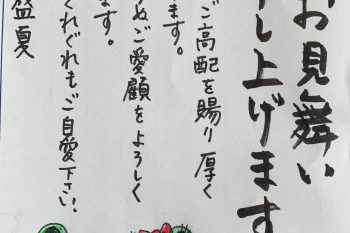 お見舞い
申し上げます
ご高配を賜り厚く
ます。
ぬご愛顧をよろしく
ます。
くれぐれもご自愛下さい。
盛夏